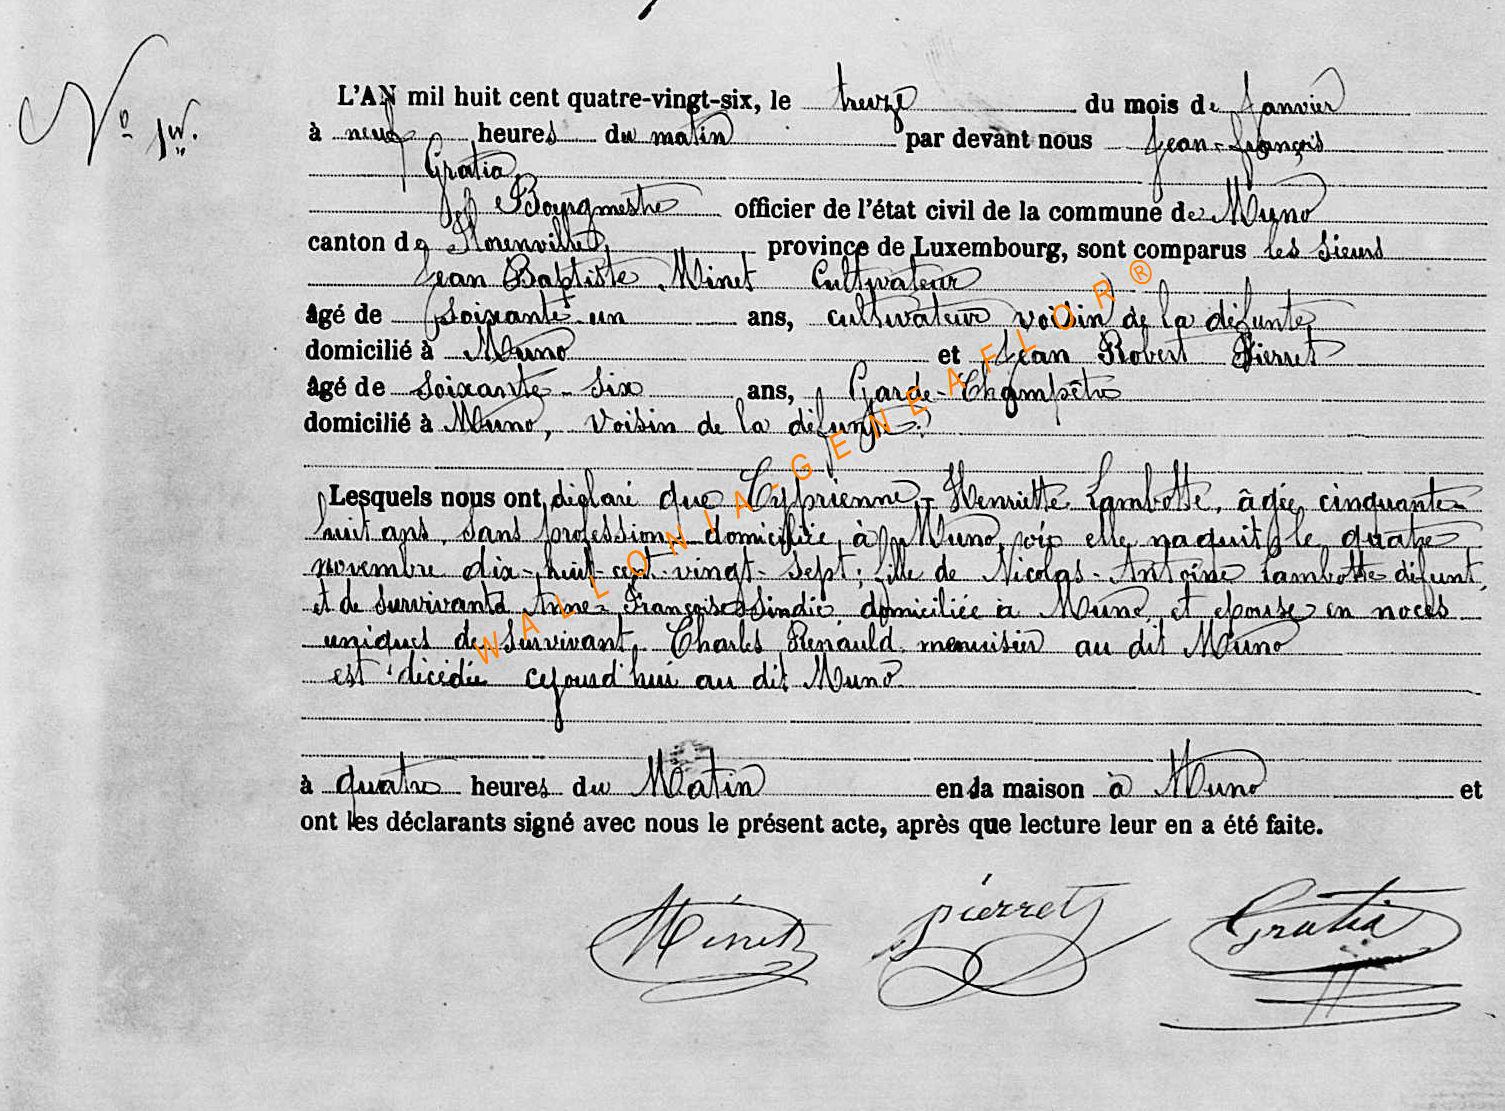 N° 1er.
L'AN mil huit cent quatre-vingt-six, le treize du mois de Janvier
à neuf heures du matin par devant nous Jean-François
Gratia
Bourgmestre officier de l'état civil de la commune de Muno
canton de Florenville, province de Luxembourg, sont comparus les sieurs
Jean Baptiste Minet Cultivateur
âgé de soixante un ans, cultivateur voisin de la défunte
domicilié à Muno et Jean Robert Pierret
âgé de soixante-six ans, Garde-Champêtre
domicilié à Muno, voisin de la défunte.
Lesquels nous ont déclaré que Cyprienne-Henriette Lambotte, âgée cinquante-
huit ans, sans profession domiciliée à Muno, où elle naquit le quatre
novembre dix-huit-cent-vingt-sept; fille de Nicolas-Antoine Lambotte défunt,
et de survivante Anne-Françoise domiciliée à Muno, et épouse en noces
uniques de survivant Charles Renauld menuisier au dit Muno
est décédée cejourd'hui au dit Muno
à quatre heures du Matin en la maison à Muno et
ont les déclarants signé avec nous le présent acte, après que lecture leur en a été faite.
Minet pierret Gratia
WALLONIA-GENEAFLOR®